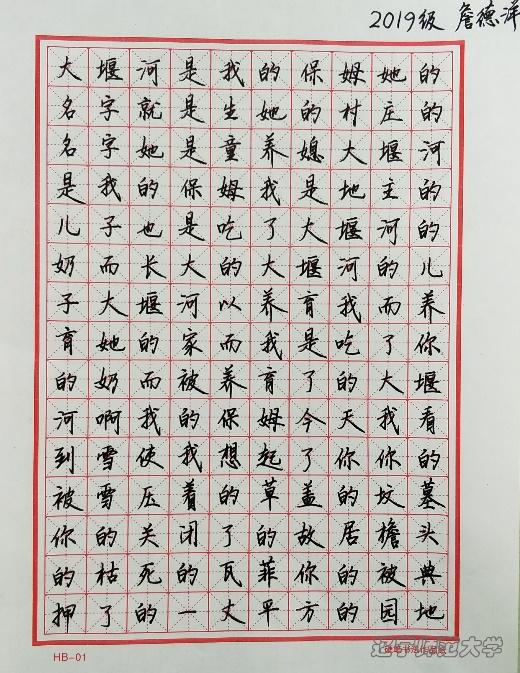 2019级 詹德洋
大堰河是我的保姆她的
名字就是生她的村庄的
名字她是童养媳大堰河
是我的保姆我是地主的
儿子也是吃了大堰河的
奶而长大的大堰河的儿
子大堰河以养育我而养
育她的家而我是吃了你
的奶而被养育了的大堰
河啊我的保姆今天我看
到雪使我想起了你你的
被雪压着的草盖的坟墓
你的关闭了的故居檐头
的枯死的瓦菲你的被典
押了的一丈平方的园地
HB-01
硬笔书法作品纸
辽宁师范大学